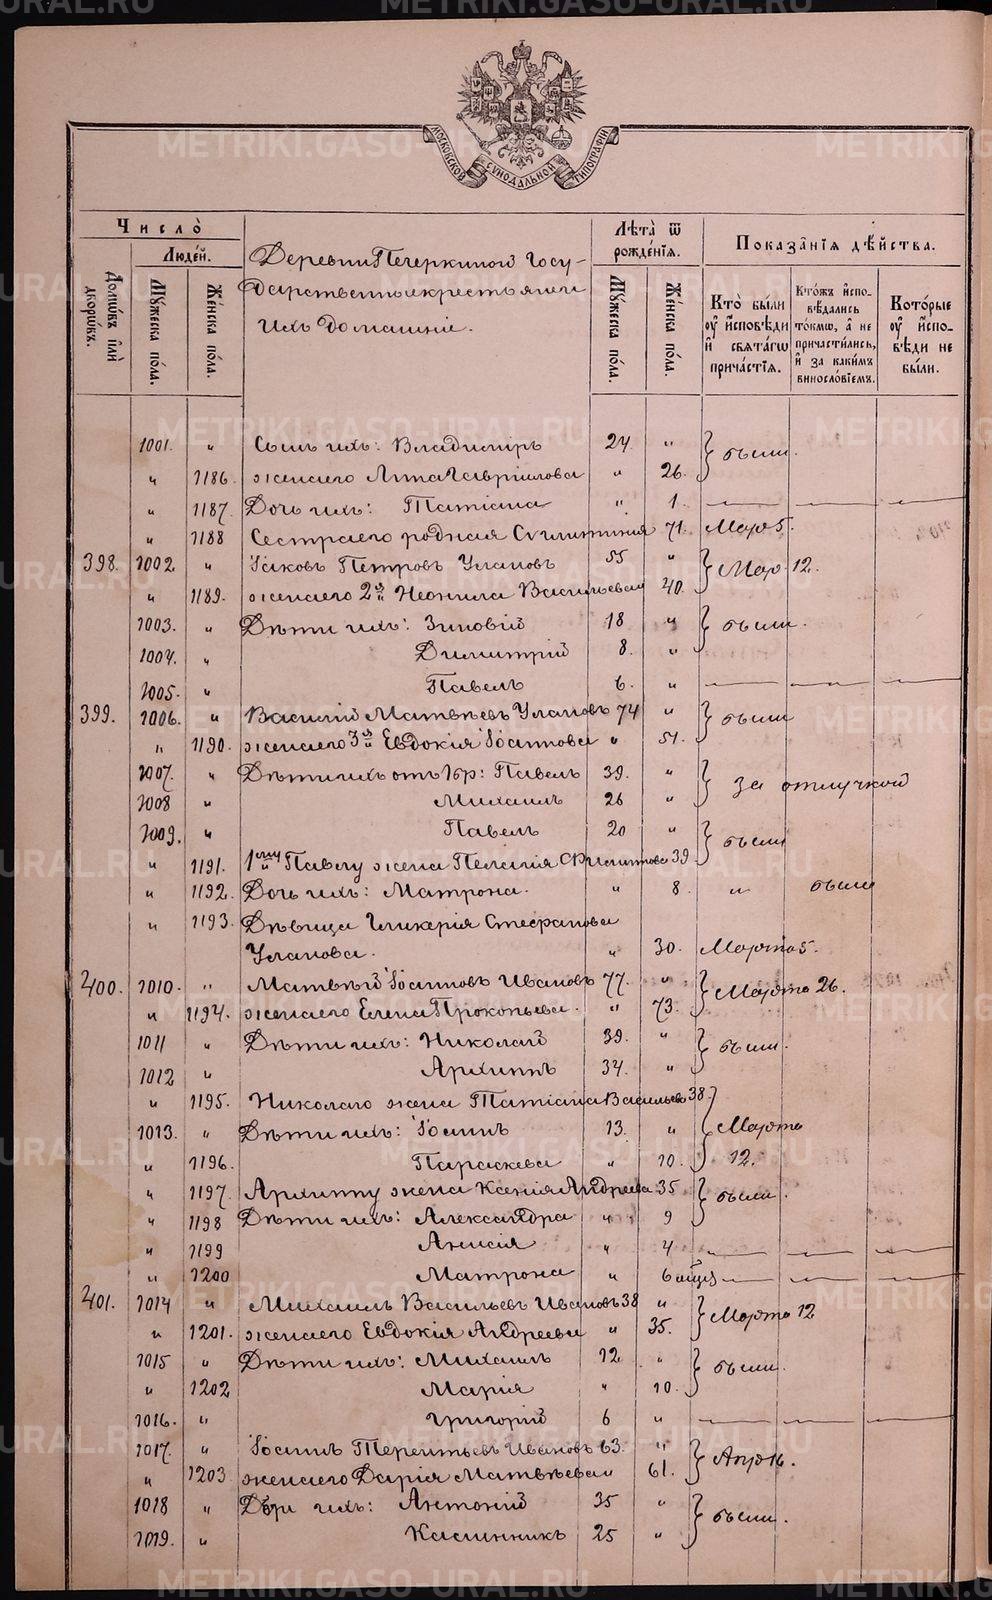 METRIKI.GASO-URAL.RU
МОСКОВСКОЙ СѴНОДАЛЬНОЙ ТИПОГРАФІИ
Число̀
Людéй.
Домѡвъ и҆лѝ дворѡвъ.
Мꙋ́жеска по́ла.
Же́нска по́ла.
Деревни Печеркиной Госу-
дарственны крестьяне и
ихъ домашніе.
Лѣта̀ ѿ рожде́нїѧ.
Мꙋ́жеска по́ла.
Же́нска по́ла.
Показа̑нїѧ дѣ́йства.
Кто̀ бы́ли оу҆ и҆́сповѣди и҆ свѧта́гѡ прича́стїѧ.
Кто́жъ и҆спо-вѣ́дались то́кмѡ, а҆ не причасти́лись, и҆ за каки́мъ винослóвіемъ.
Кото́рые оу҆ и҆́спо-вѣди не бы́ли.
1001. " Сынъ ихъ: Владиміръ 24. " были.
" 1186. жена его Анна Гавріилова " 26.
" 1187. Дочь ихъ: Татіана " 1. — — —
" 1188 Сестра его родная Сѵглитикія 71. Мар. 5.
398. 1002. " Іаковъ Петровъ Улановъ 55 " Мар. 12.
" 1189. жена его 2я Неонила Васильева 40.
1003. " Дѣти ихъ: Зиновій 18 " были.
1004. " Димитрій 8. "
1005. " Павелъ 6. " — — —
399. 1006. " Василій Матвѣевъ Улановъ 74 " были
" 1190. жена его 3я Евдокія Іоаннова " 51.
1007. " Дѣти ихъ отъ 1 бр: Павелъ 39. " за отлучкой
1008 " Михаилъ 26 "
1009. " Павелъ 20 " были
" 1191. 1му Павлу жена Пелагія Филиппова 39
" 1192. Дочь ихъ: Матрона. " 8. " были
" 1193. Дѣвица Гликерія Стефанова
Уланова. " 30. Марта 5.
400. 1010. " Матвѣй Іоанновъ Ивановъ 77. " Марта 26.
" 1194. жена его Елена Прокопьева. " 73.
1011 " Дѣти ихъ: Николай 39. " были.
1012 " Архиппъ 34. "
" 1195. Николаю жена Татіана Васильева 38.
1013. " Дѣти ихъ: Іоаннъ 13. " Марта
" 1196. Параскева " 10. 12.
" 1197. Архиппу жена Ксенія Андреева 35 были.
" 1198 Дѣти ихъ: Александра " 9
" 1199 Анисія " 4 — — —
" 1200 Матрона " 6 мцз — — —
401. 1014 " Михаилъ Васильевъ Ивановъ 38 " Марта 12
" 1201. жена его Евдокія Андреева " 35.
1015 " Дѣти ихъ: Михаилъ 12 " были.
" 1202 Марія " 10.
1016. " Григорій 6 " — — —
1017. " Іоаннъ Терентьевъ Ивановъ 63. " Апр. 16.
" 1203. жена его Дарія Матвѣева " 61.
1018 " Дѣти ихъ: Антоній 35 " были.
1019. " Каллинникъ 25 "